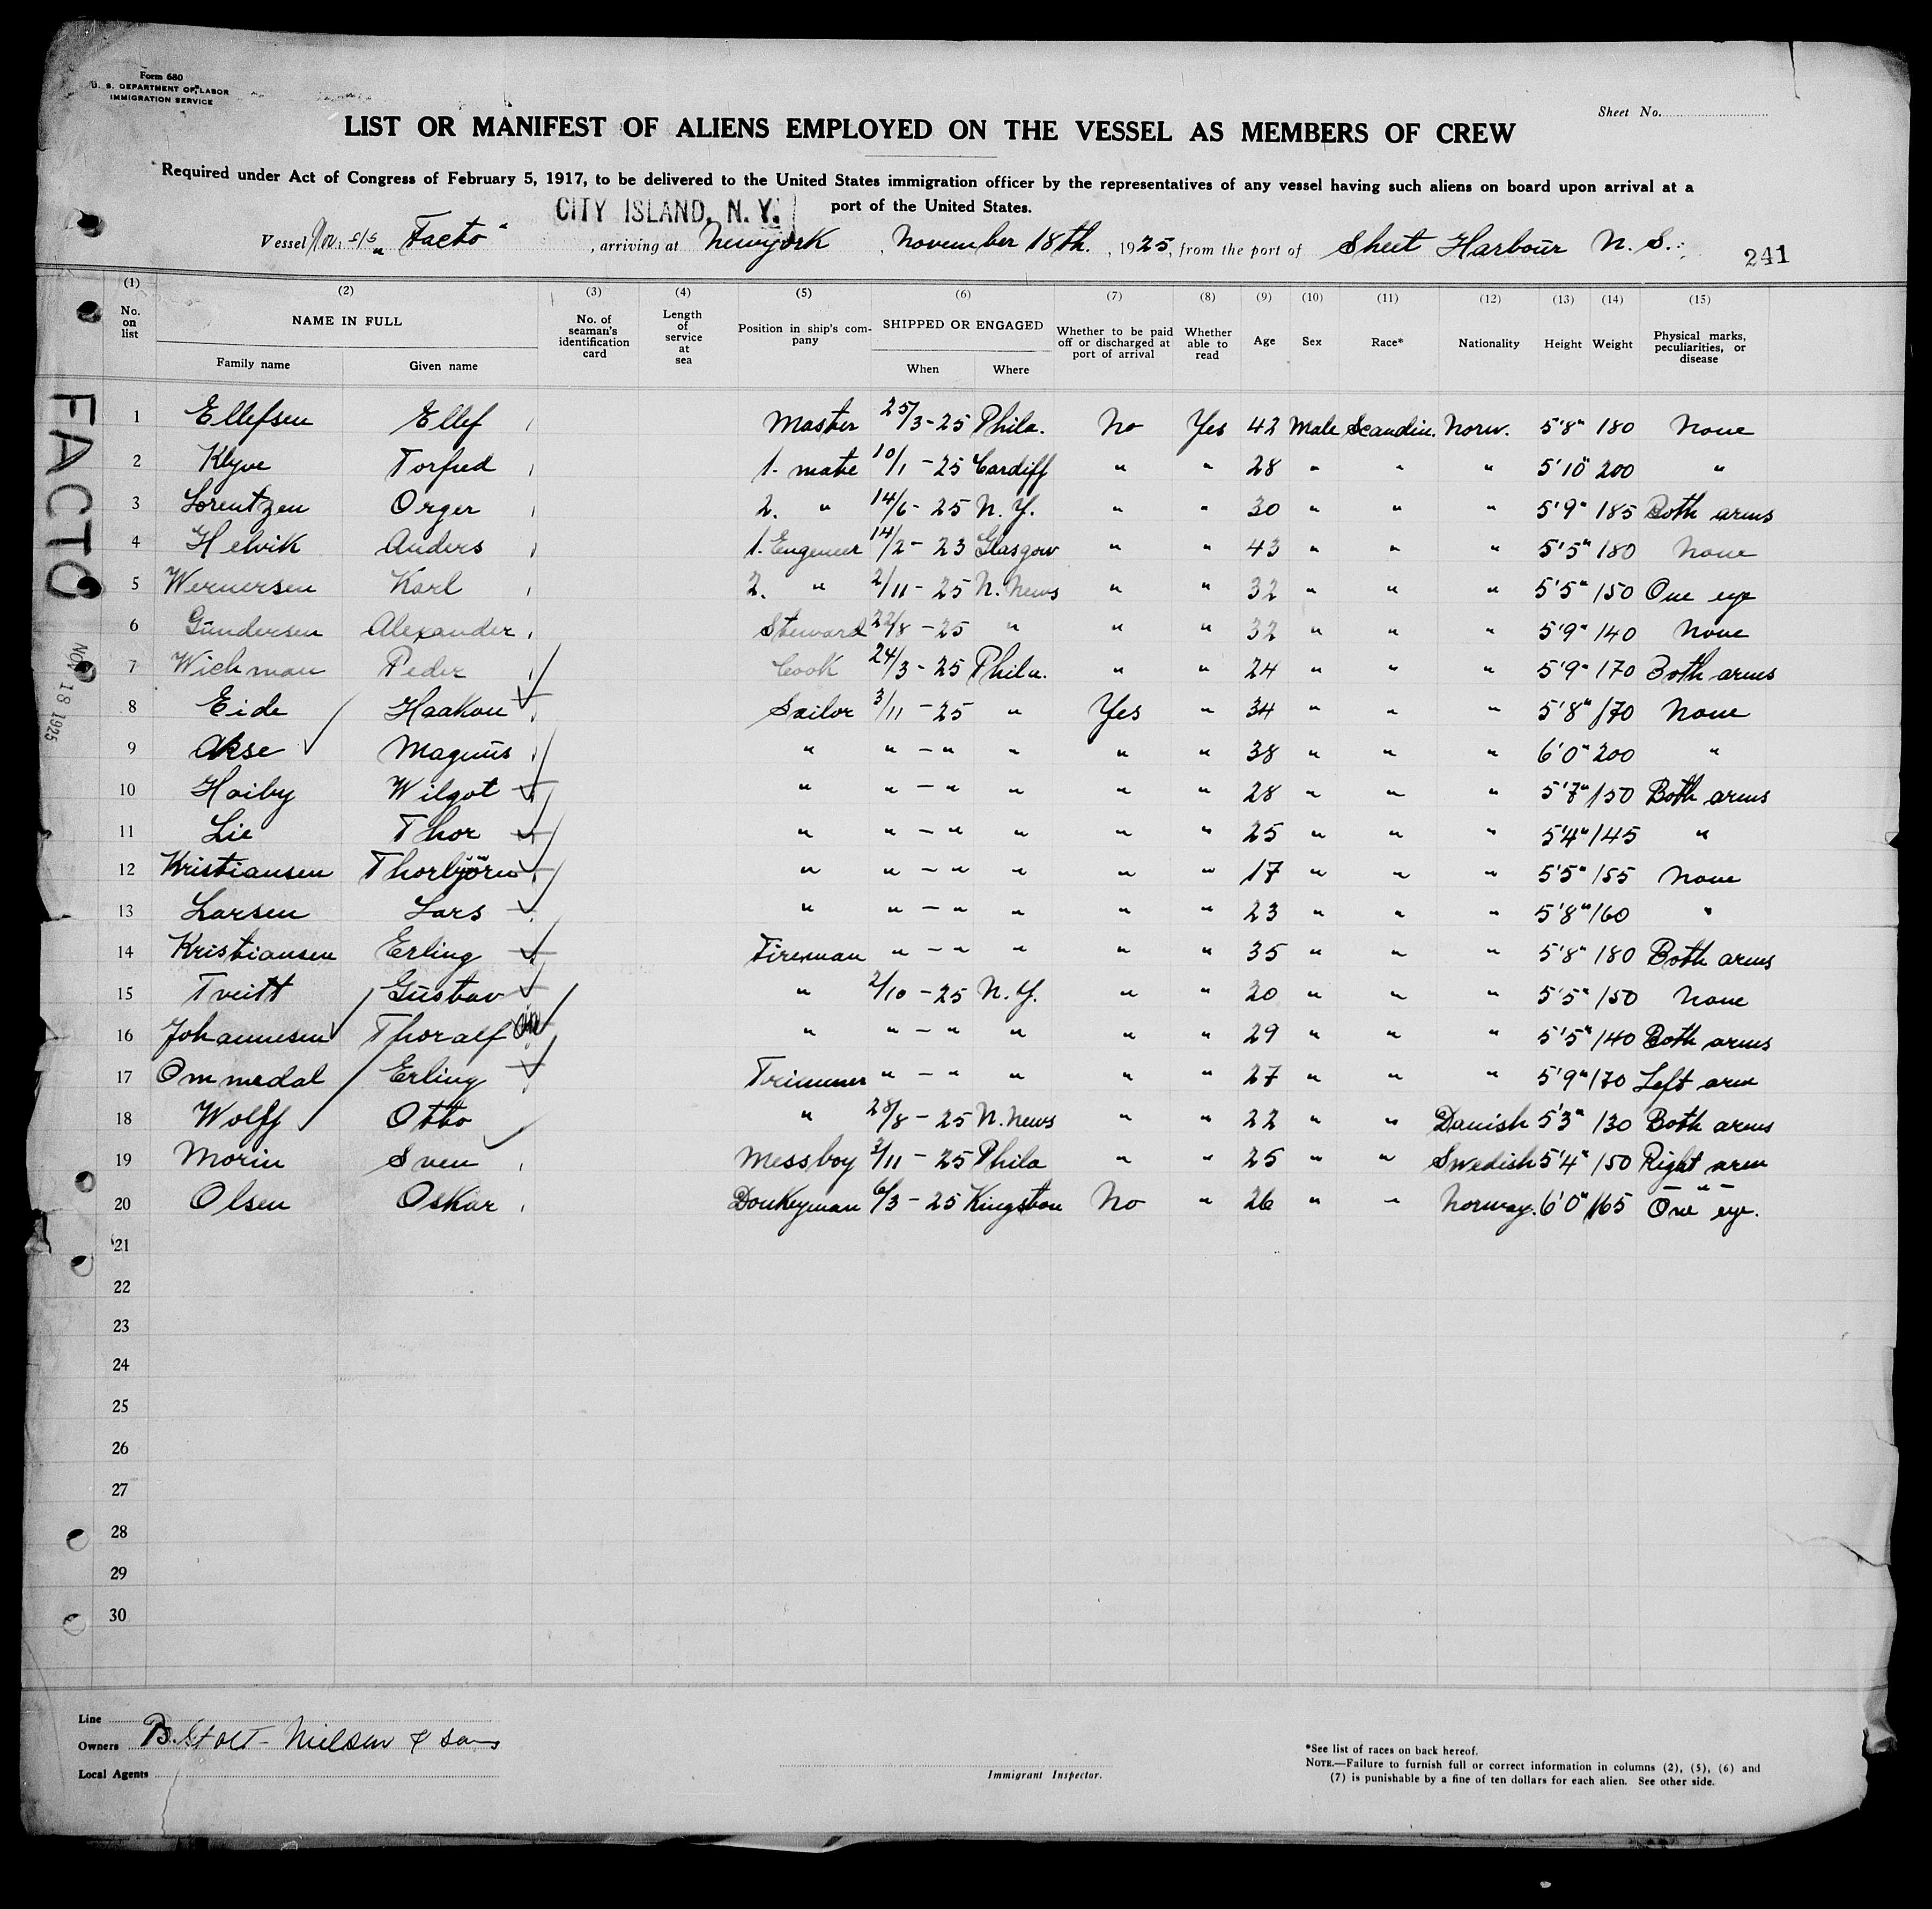 Form 680
U. S. DEPARTMENT OF LABOR
IMMIGRATION SERVICE
Sheet No.
LIST OR MANIFEST OF ALIENS EMPLOYED ON THE VESSEL AS MEMBERS OF CREW
Required under Act of Congress of February 5, 1917, to be delivered to the United States immigration officer by the representatives of any vessel having such aliens on board upon arrival at a
port of the United States.
CITY ISLAND, N. Y.
Vessel Nor. s/s "Facto", arriving at Newyork, November 18th., 1925, from the port of Sheet Harbour N. S.
241
(1) (2) (3) (4) (5) (6) (7) (8) (9) (10) (11) (12) (13) (14) (15)
No. on list NAME IN FULL Family name Given name No. of seaman's identification card Length of service at sea Position in ship's company SHIPPED OR ENGAGED When Where Whether to be paid off or discharged at port of arrival Whether able to read Age Sex Race* Nationality Height Weight Physical marks, peculiarities, or disease
FACTO
NOV 18 1925
1 Ellefsen Ellef Master 25/3-25 Phila. No Yes 42 Male Scandin. Norw. 5'8" 180 None
2 Klyve Torfred 1. mate 10/1 - 25 Cardiff " " 28 " " " 5'10" 200 "
3 Lorentzen Orger 2. " 14/6 - 25 N. Y. " " 30 " " " 5'9" 185 Both arms
4 Helvik Anders 1. Engeneer 14/2 - 23 Glasgow " " 43 " " " 5'5" 180 None
5 Wernersen Karl 2. " 2/11 - 25 N. News " " 32 " " " 5'5" 150 One eye
6 Gundersen Alexander Steward 22/8 - 25 " " " 32 " " " 5'9" 140 None
7 Wichman Peder Cook 24/3 - 25 Phila. " " 24 " " " 5'9" 170 Both arms
8 Eide Haakon Sailor 3/11 - 25 " Yes " 34 " " " 5'8" 170 None
9 Akse Magnus " " - " " " " 38 " " " 6'0" 200 "
10 Hoiby Wilgot " " - " " " " 28 " " " 5'7" 150 Both arms
11 Lie Thor " " - " " " " 25 " " " 5'4" 145 "
12 Kristiansen Thorbjörn " " - " " " " 17 " " " 5'5" 155 None
13 Larsen Lars " " - " " " " 23 " " " 5'8" 160 "
14 Kristiansen Erling Fireman " - " " " " 35 " " " 5'8" 180 Both arms
15 Tveitt Gustav " 2/10 - 25 N. Y. " " 20 " " " 5'5" 150 None
16 Johannesen Thoralf " " - " " " " 29 " " " 5'5" 140 Both arms
17 Ommedal Erling Trimmer " - " " " " 27 " " " 5'9" 170 Left arm
18 Wolff Otto " 28/8 - 25 N. News " " 22 " " Danish 5'3" 130 Both arms
19 Morin Sven Messboy 3/11 - 25 Phila " " 25 " " Swedish 5'4" 150 Right arm
20 Olsen Oskar Donkeyman 6/3 - 25 Kingston No " 26 " " Norway. 6'0" 165 - " - One eye.
21
22
23
24
25
26
27
28
29
30
Line
Owners B. Stolt-Nielsen & Sons
Local Agents
Immigrant Inspector.
*See list of races on back hereof.
NOTE.—Failure to furnish full or correct information in columns (2), (5), (6) and
(7) is punishable by a fine of ten dollars for each alien. See other side.